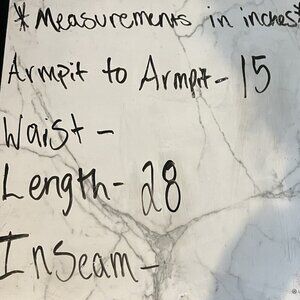 * Measurements in inches*
Armpit to Armpit - 15
Waist -
Length - 28
Inseam -